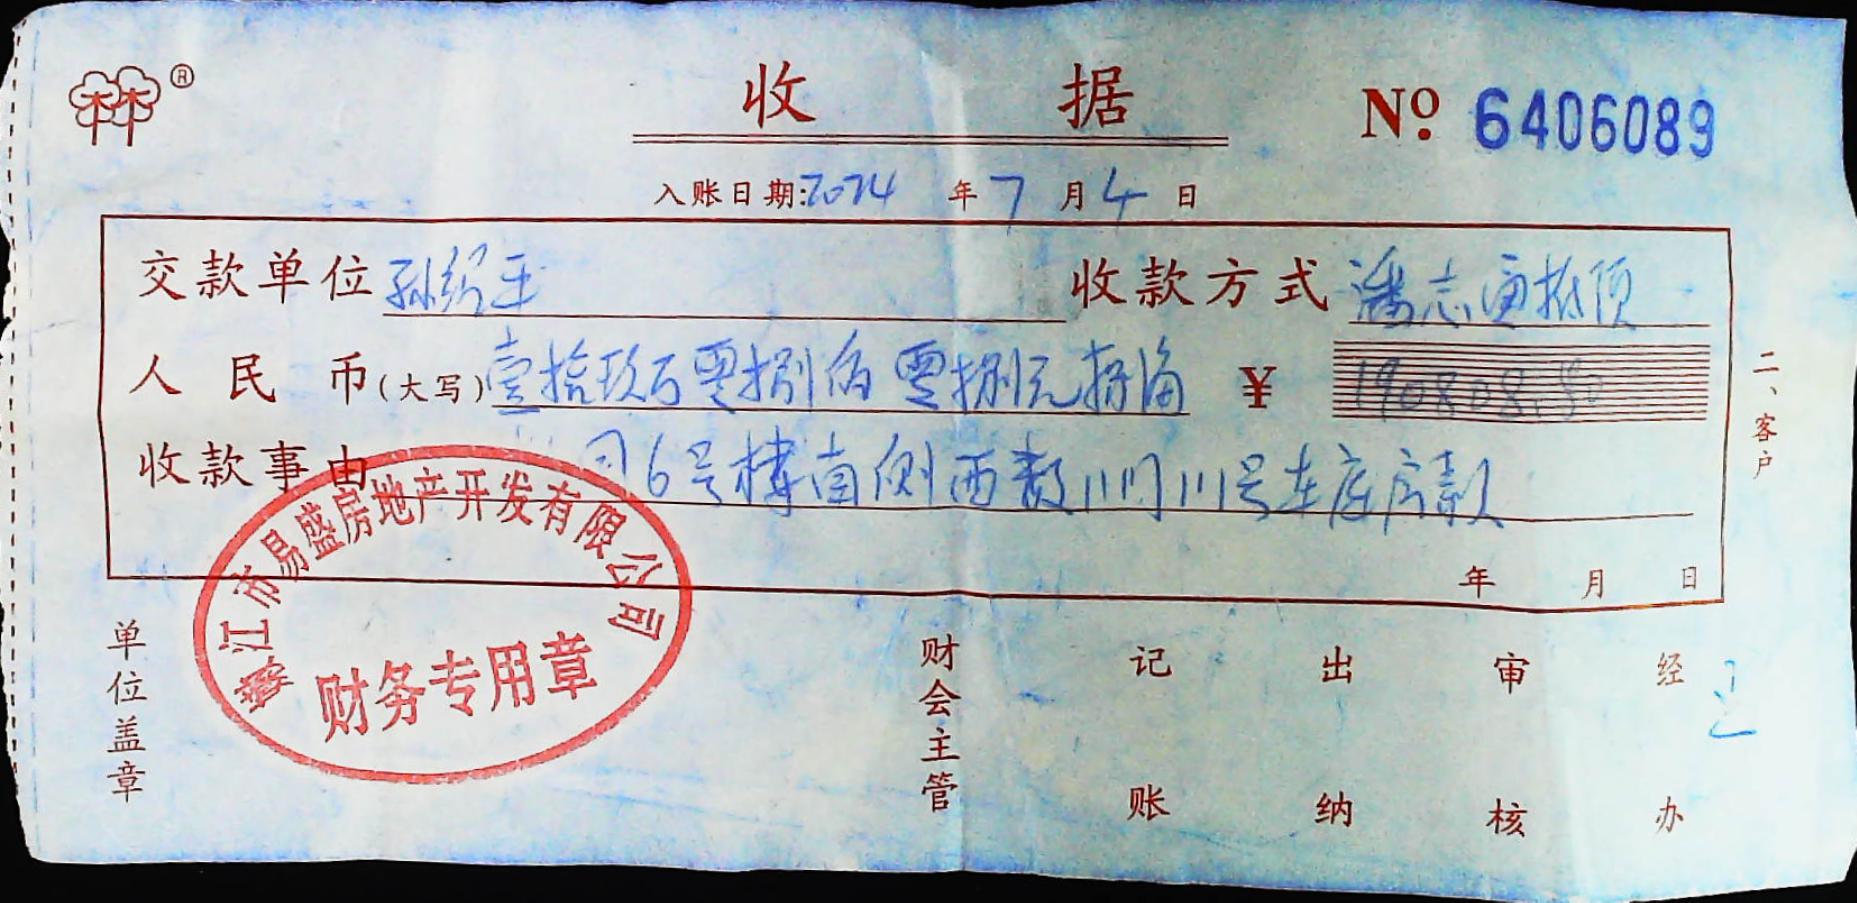 ®
收 据
№ 6406089
入账日期:2024 年 7 月 4 日
交款单位 孙绍玉 收款方式 潘志勇抵顶
人民币(大写) 壹拾玖万零捌佰零捌元捌角 ¥ 190808.80
收款事由 6号楼南侧西数11门111号车库房款
年 月 日
二、客户
江市易盛房地产开发有限公司
财务专用章
单位盖章 财会主管 记账 出纳 审核 经办